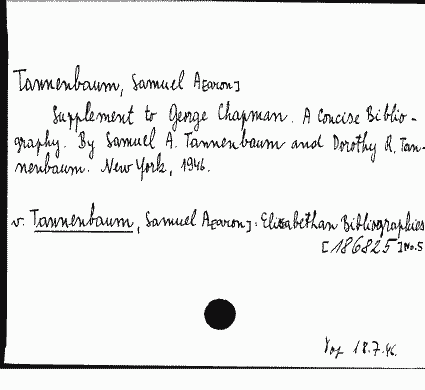 Tannenbaum, Samuel A[aron]
Supplement to George Chapman. A Concise Biblio-
graphy. By Samuel A. Tannenbaum and Dorothy R. Tan-
nenbaum. New York, 1946.
v. Tannenbaum, Samuel A[aron]: Elizabethan Bibliographies
[186825] No. 5
18.7.46.